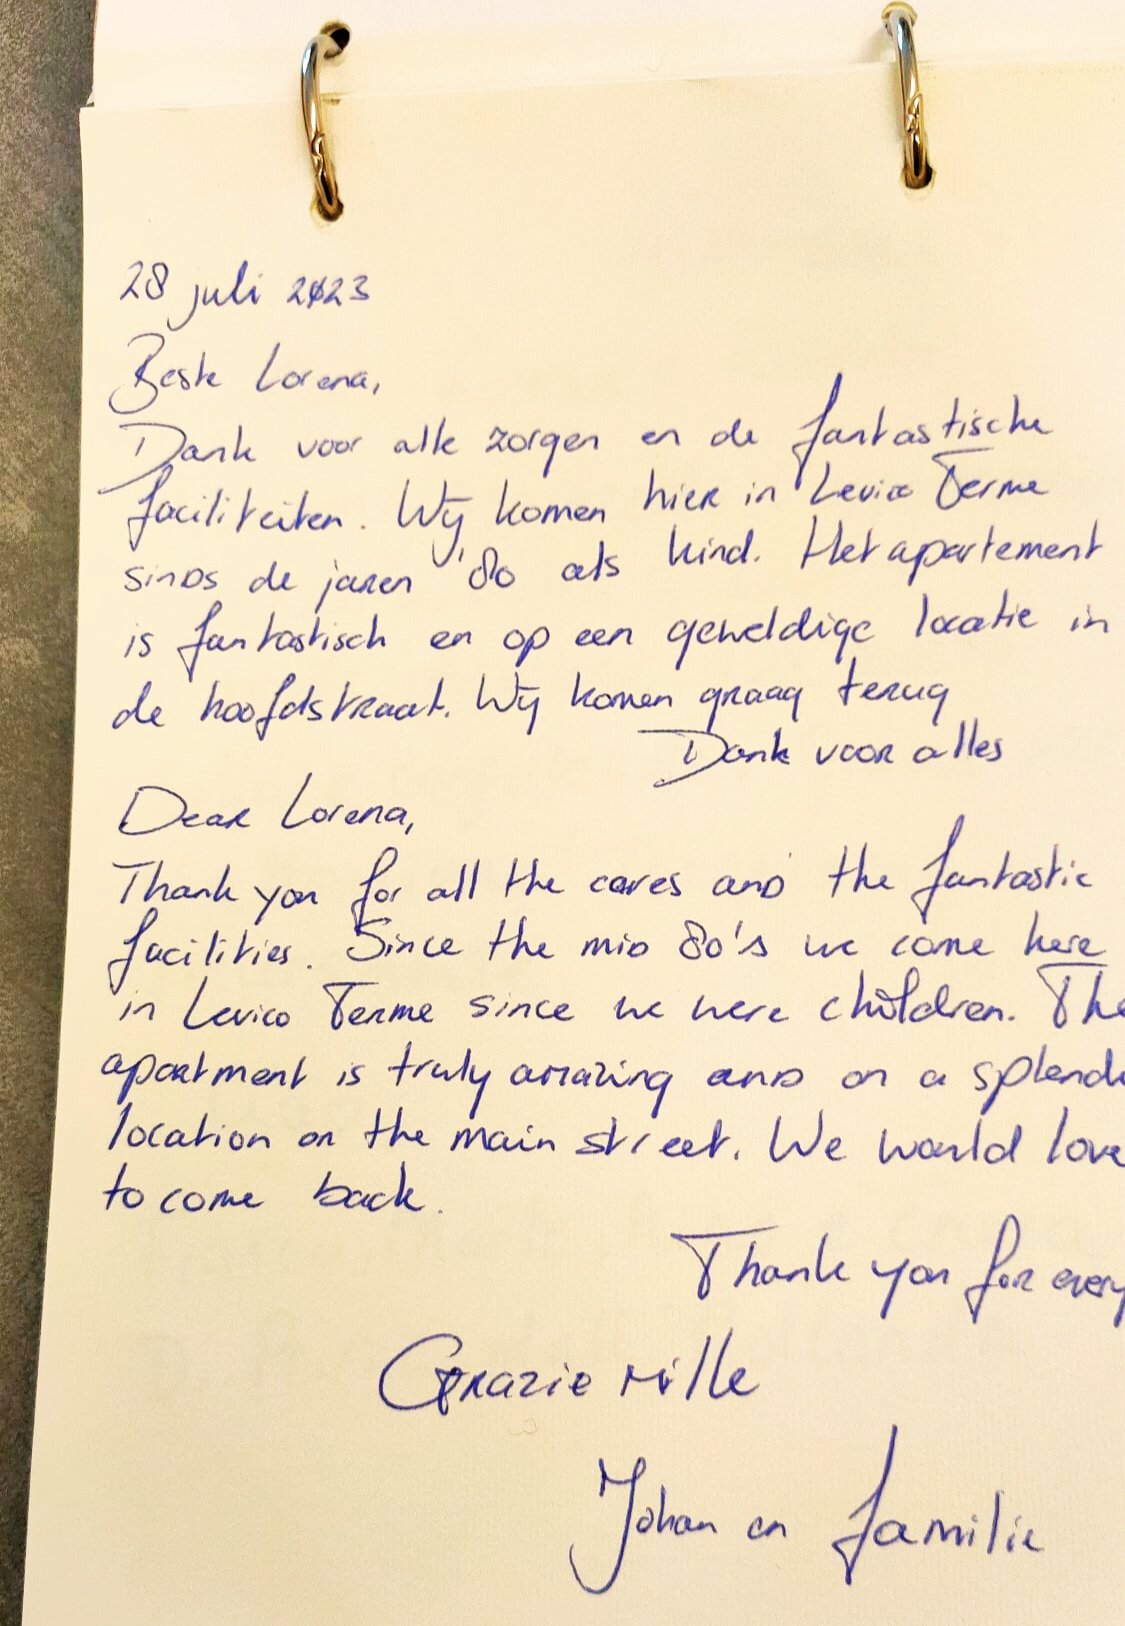 28 juli 2023
Beste Lorena,
Dank voor alle zorgen en de fantastische
faciliteiten. Wij komen hier in Levico Terme
sinds de jaren '80 als kind. Het apartement
is fantastisch en op een geweldige locatie in
de hoofdstraat. Wij komen graag terug
Dank voor alles
Dear Lorena,
Thank you for all the cares and the fantastic
facilities. Since the mid 80's we come here
in Levico Terme since we were children. The
apartment is truly amazing and on a splendi
location on the main street. We would love
to come back.
Thank you for every
Grazie mille
Johan en familie